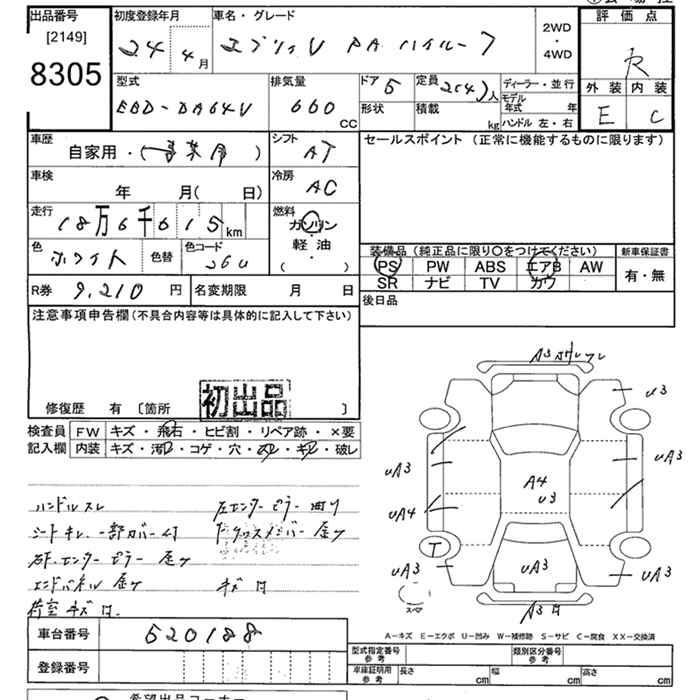 出品番号
[2149]
8305
初度登録年月
24 4月
車名・グレード
エブリィV PA ハイルーフ
2WD
・
4WD
評価点
R
外装 内装
E C
型式
EBD-DA64V
排気量
660 CC
ドア 5
形状
定員 2(4)人
積載 kg
ディーラー・並行
モデル年式 年
ハンドル 左・右
車歴
自家用・(事業用)
シフト
AT
車検
年 月( 日)
冷房
AC
走行
18万6千615km
燃料
ガソリン
・
軽油
・
( )
色 ホワイト
色替
色コード
26U
R券 9,210円
名変期限 月 日
セールスポイント (正常に機能するものに限ります)
装備品 (純正品に限り○をつけてください)
PS PW ABS エアB AW
SR ナビ TV カワ
新車保証書
有・無
後日品
注意事項申告欄(不具合内容等は具体的に記入して下さい)
初出品
修復歴 有 〔箇所 〕
検査員
記入欄
FW キズ・飛石・ヒビ割・リペア跡・×要
内装 キズ・汚れ・コゲ・穴・・・破レ
ハンドルスレ
シートキレ、一部カバー付
右F.センターピラー 金ヅ
エンドパネル 金ヅ
荷室キズ凹.
左センターピラー曲り
下クロスメンバー 金ヅ
キズ凹
A3
U3
UA3
UA3
UA4
A4
U3
UA3
T
UA3
UA3
UA3
スペア
A3凹
A-キズ E-エクボ U-凹み W-補修跡 S-サビ C-腐食 XX-交換済
車台番号 520188
登録番号
型式指定番号
参考
類別区分番号
参考
車庫証明用
参考
長さ cm 幅 cm 高さ cm
希望出品コーナー